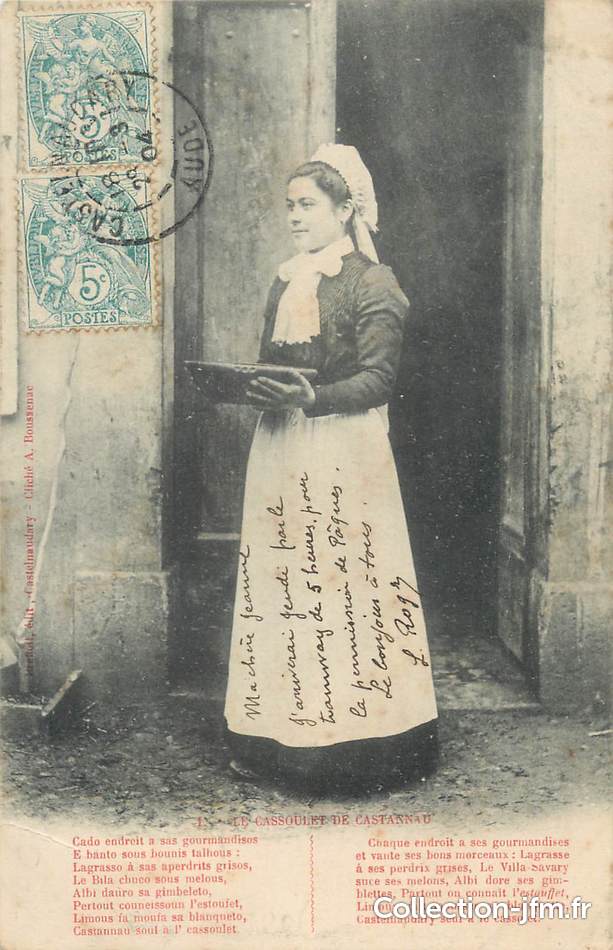 5c
POSTES
5c
POSTES
CASTELNAUDARY
AUDE
04
édit, Castelnaudary - Cliché A. Boussenac
Ma chère Jeanne
J'arriverai jeudi par le
tramway de 5 heures, pour
la permission de Pâques.
Le bonjour à tous.
L.
1. - LE CASSOULET DE CASTANNAU
Cado endreit a sas gourmandisos
E banto sous bounis talhous :
Lagrasso à sas aperdrits grisos,
Le Bila chuco sous melous,
Albi dauro sa gimbeleto,
Pertout couneissoun l'estoufet,
Limous fa moufa sa blanqueto,
Castannau soul a l' cassoulet.
Chaque endroit a ses gourmandises
et vante ses bons morceaux : Lagrasse
à ses perdrix grises, Le Villa-Savary
suce ses melons, Albi dore ses gim-
blettes, Partout on connaît l'estouffet,
Castelnaudary seul a le cassoulet.
Collection-jfm.fr